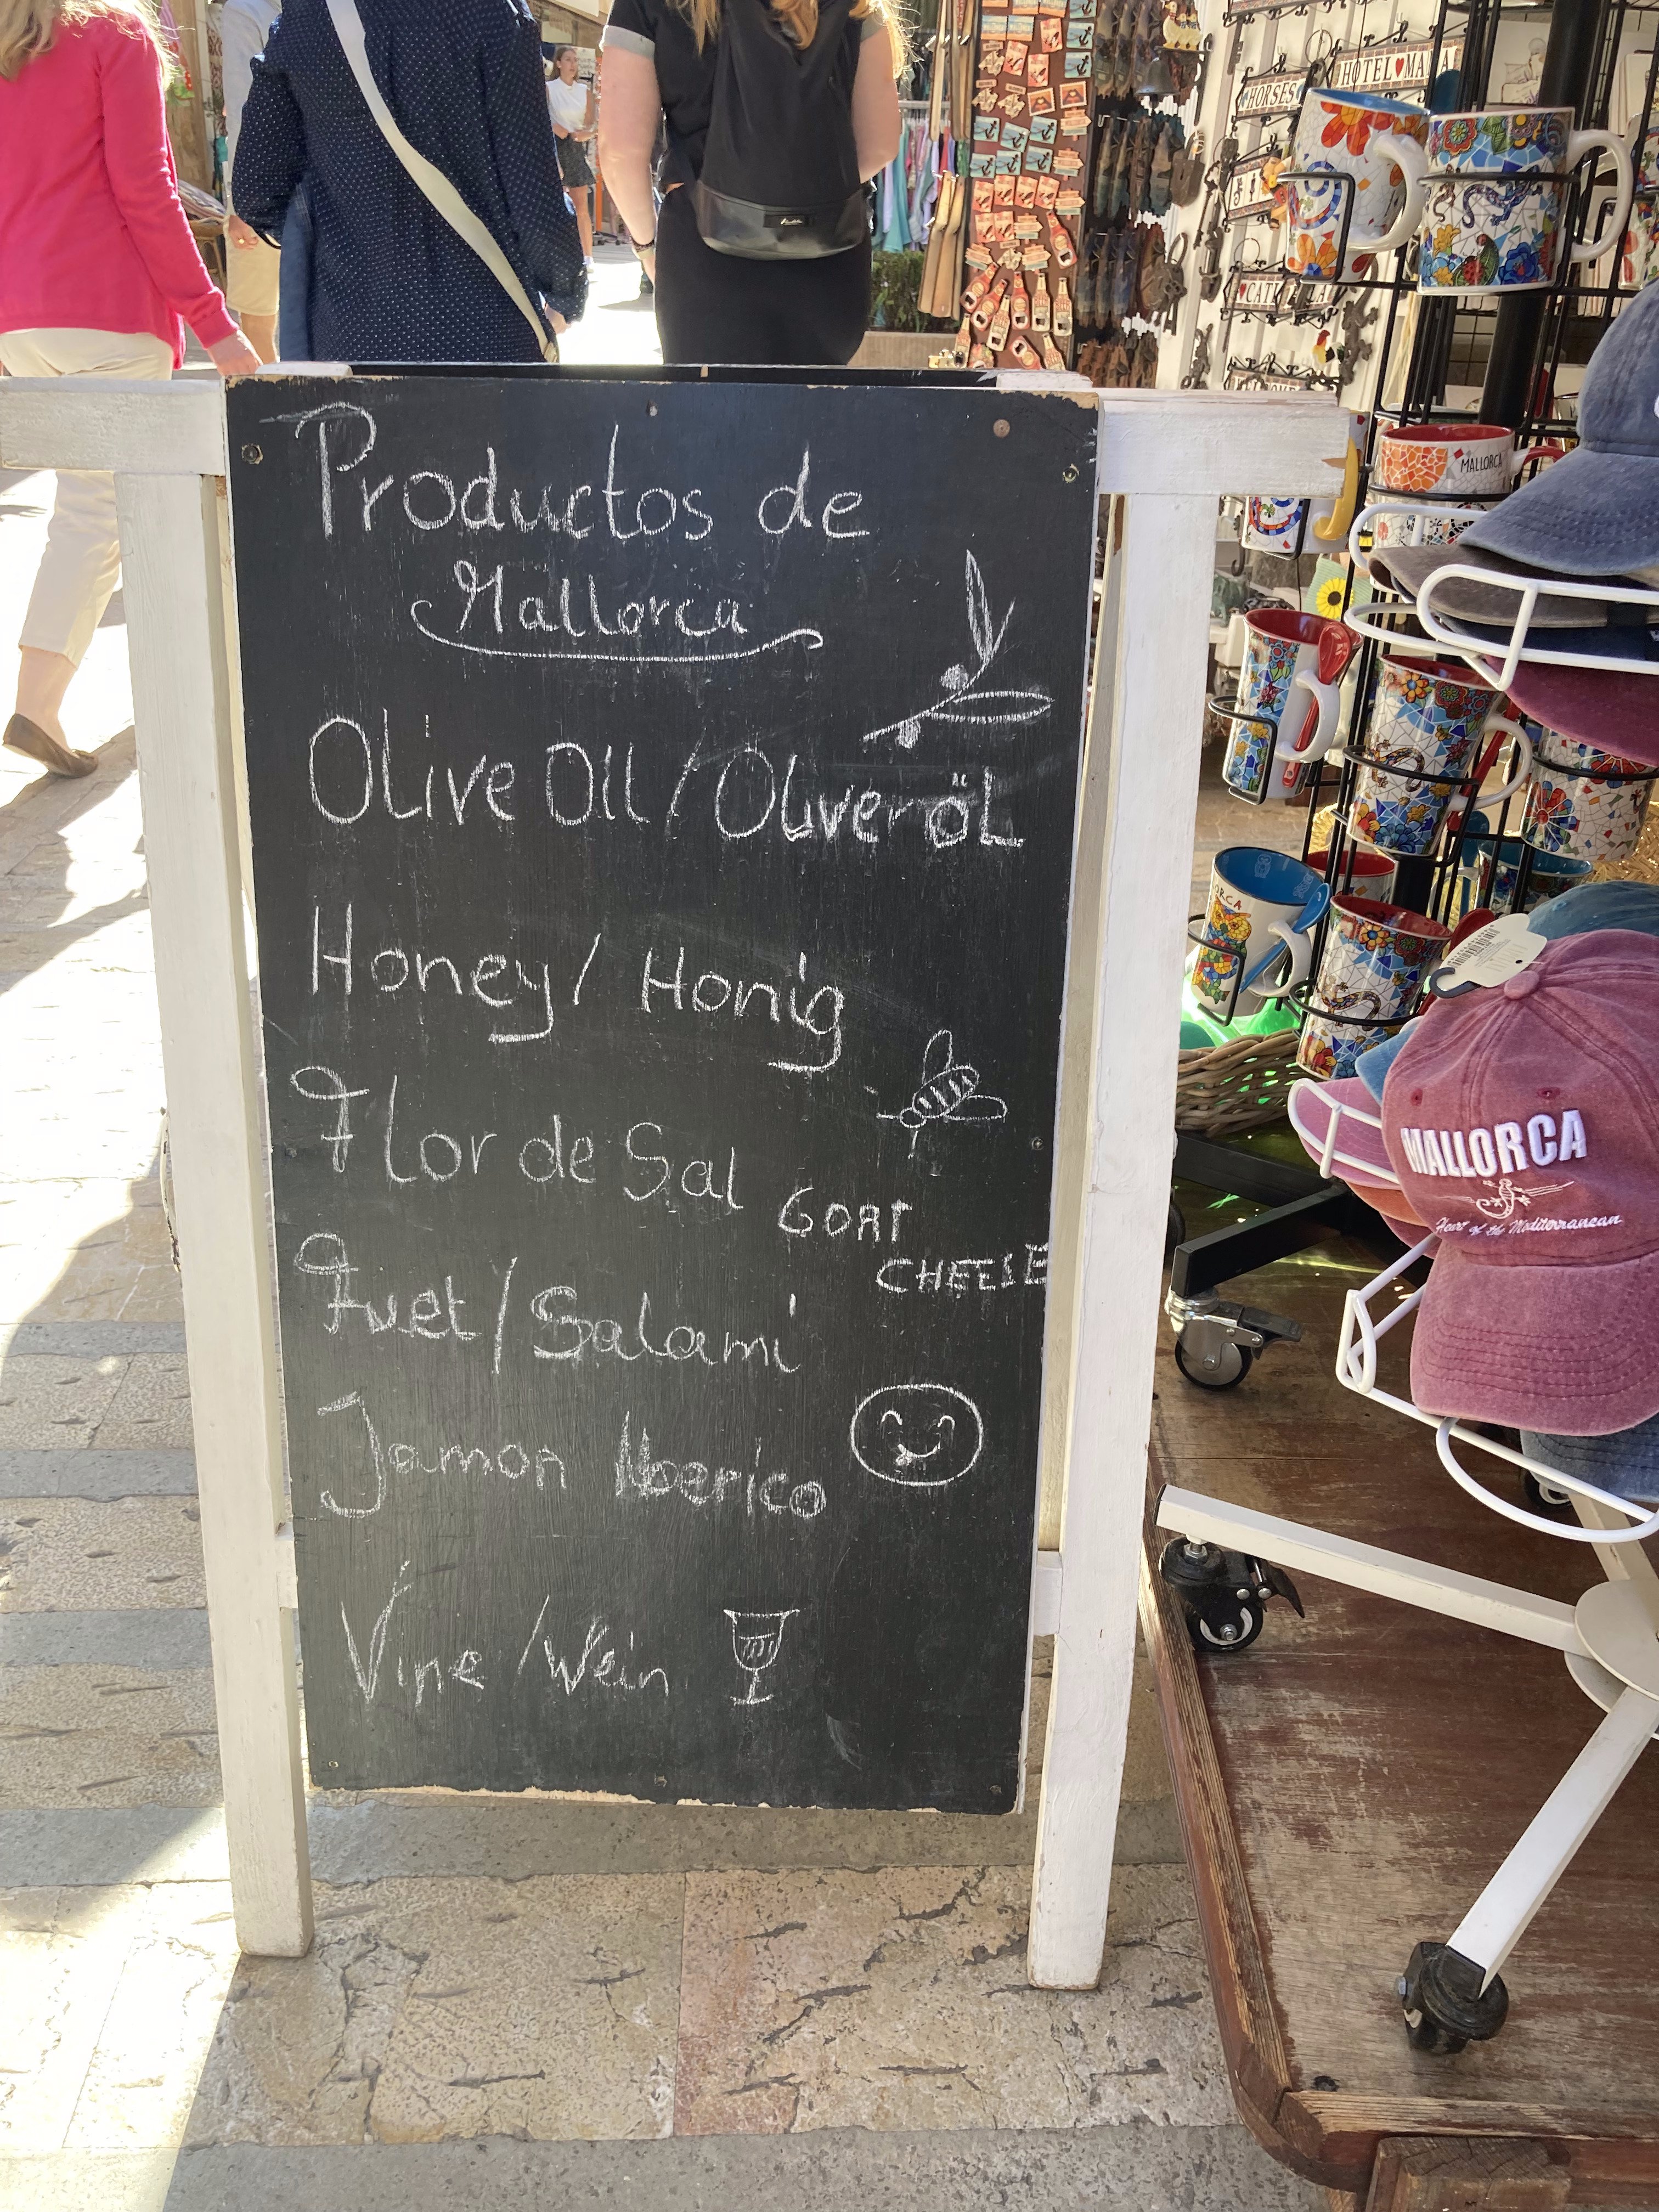 Productos de
Mallorca
Olive Oil / Oliveröl
Honey / Honig
Flor de Sal
GOAT
CHEESE
Fuet / Salami
Jamon Iberico
Vine / Wein
HOTEL MAMA
HORSES
MALLORCA
MALLORCA
Heart of the Mediterranean